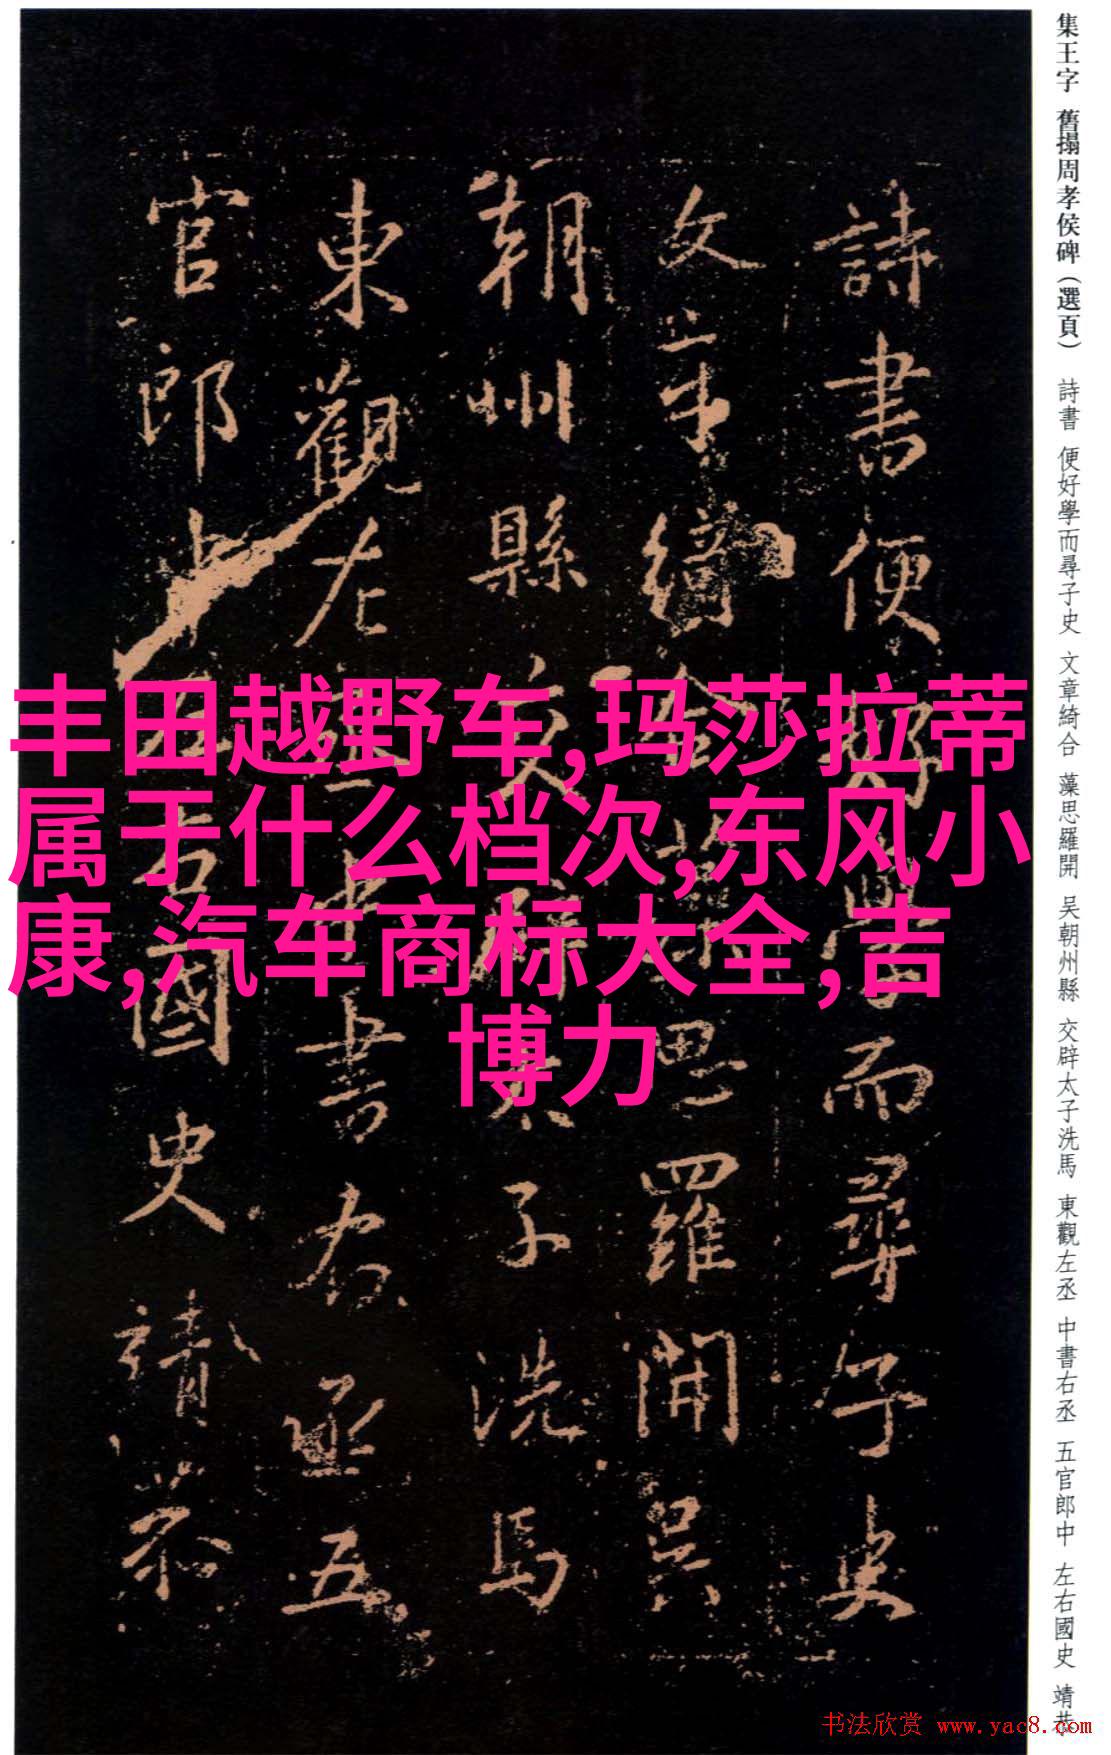 集王字 舊搨周孝侯碑（選頁） 詩書 便好學而尋子史 文章綺合 藻思羅開 吳朝州縣 交辟太子洗馬 東觀左丞 中書右丞 五官郎中 左右國史 靖恭
詩書便好學而尋子史
文章綺合藻思羅開吳
朝州縣交辟太子洗馬
東觀左丞中書右丞五
官郎中左右國史靖恭
丰田越野车,玛莎拉蒂
属于什么档次,东风小
康,汽车商标大全,吉
博力
书法欣赏 www.yac8.com